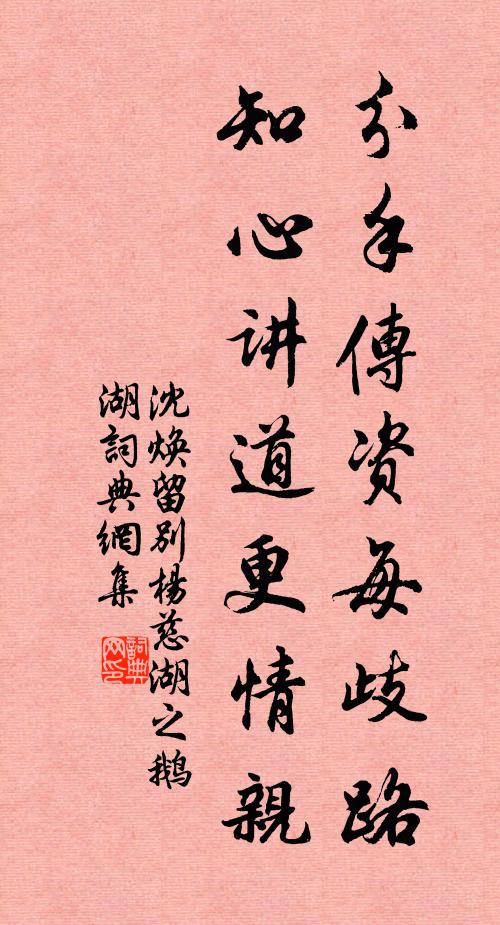 分手傳资每歧路
知心讲道更情親
沈焕留别楊慈湖之鵝
湖詞典網集
詞典网印